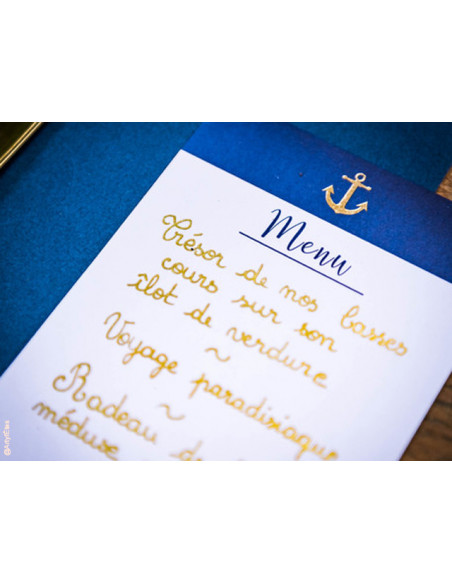 Menu
Trésor de nos basses
cours sur son
îlot de verdure
~
Voyage paradisiaque
~
Radeau de
méduse